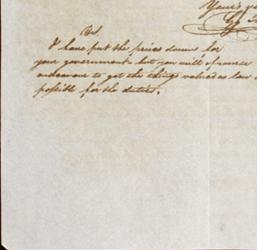 Yours
I have put the prices down for
your government but you will of course
endeavour to get the things valued as low as
possible for the duties.